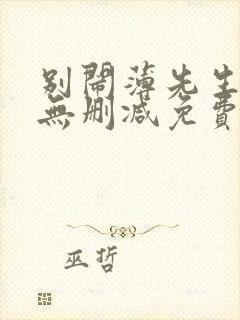 别鬧薄先生
無删减免費
巫哲